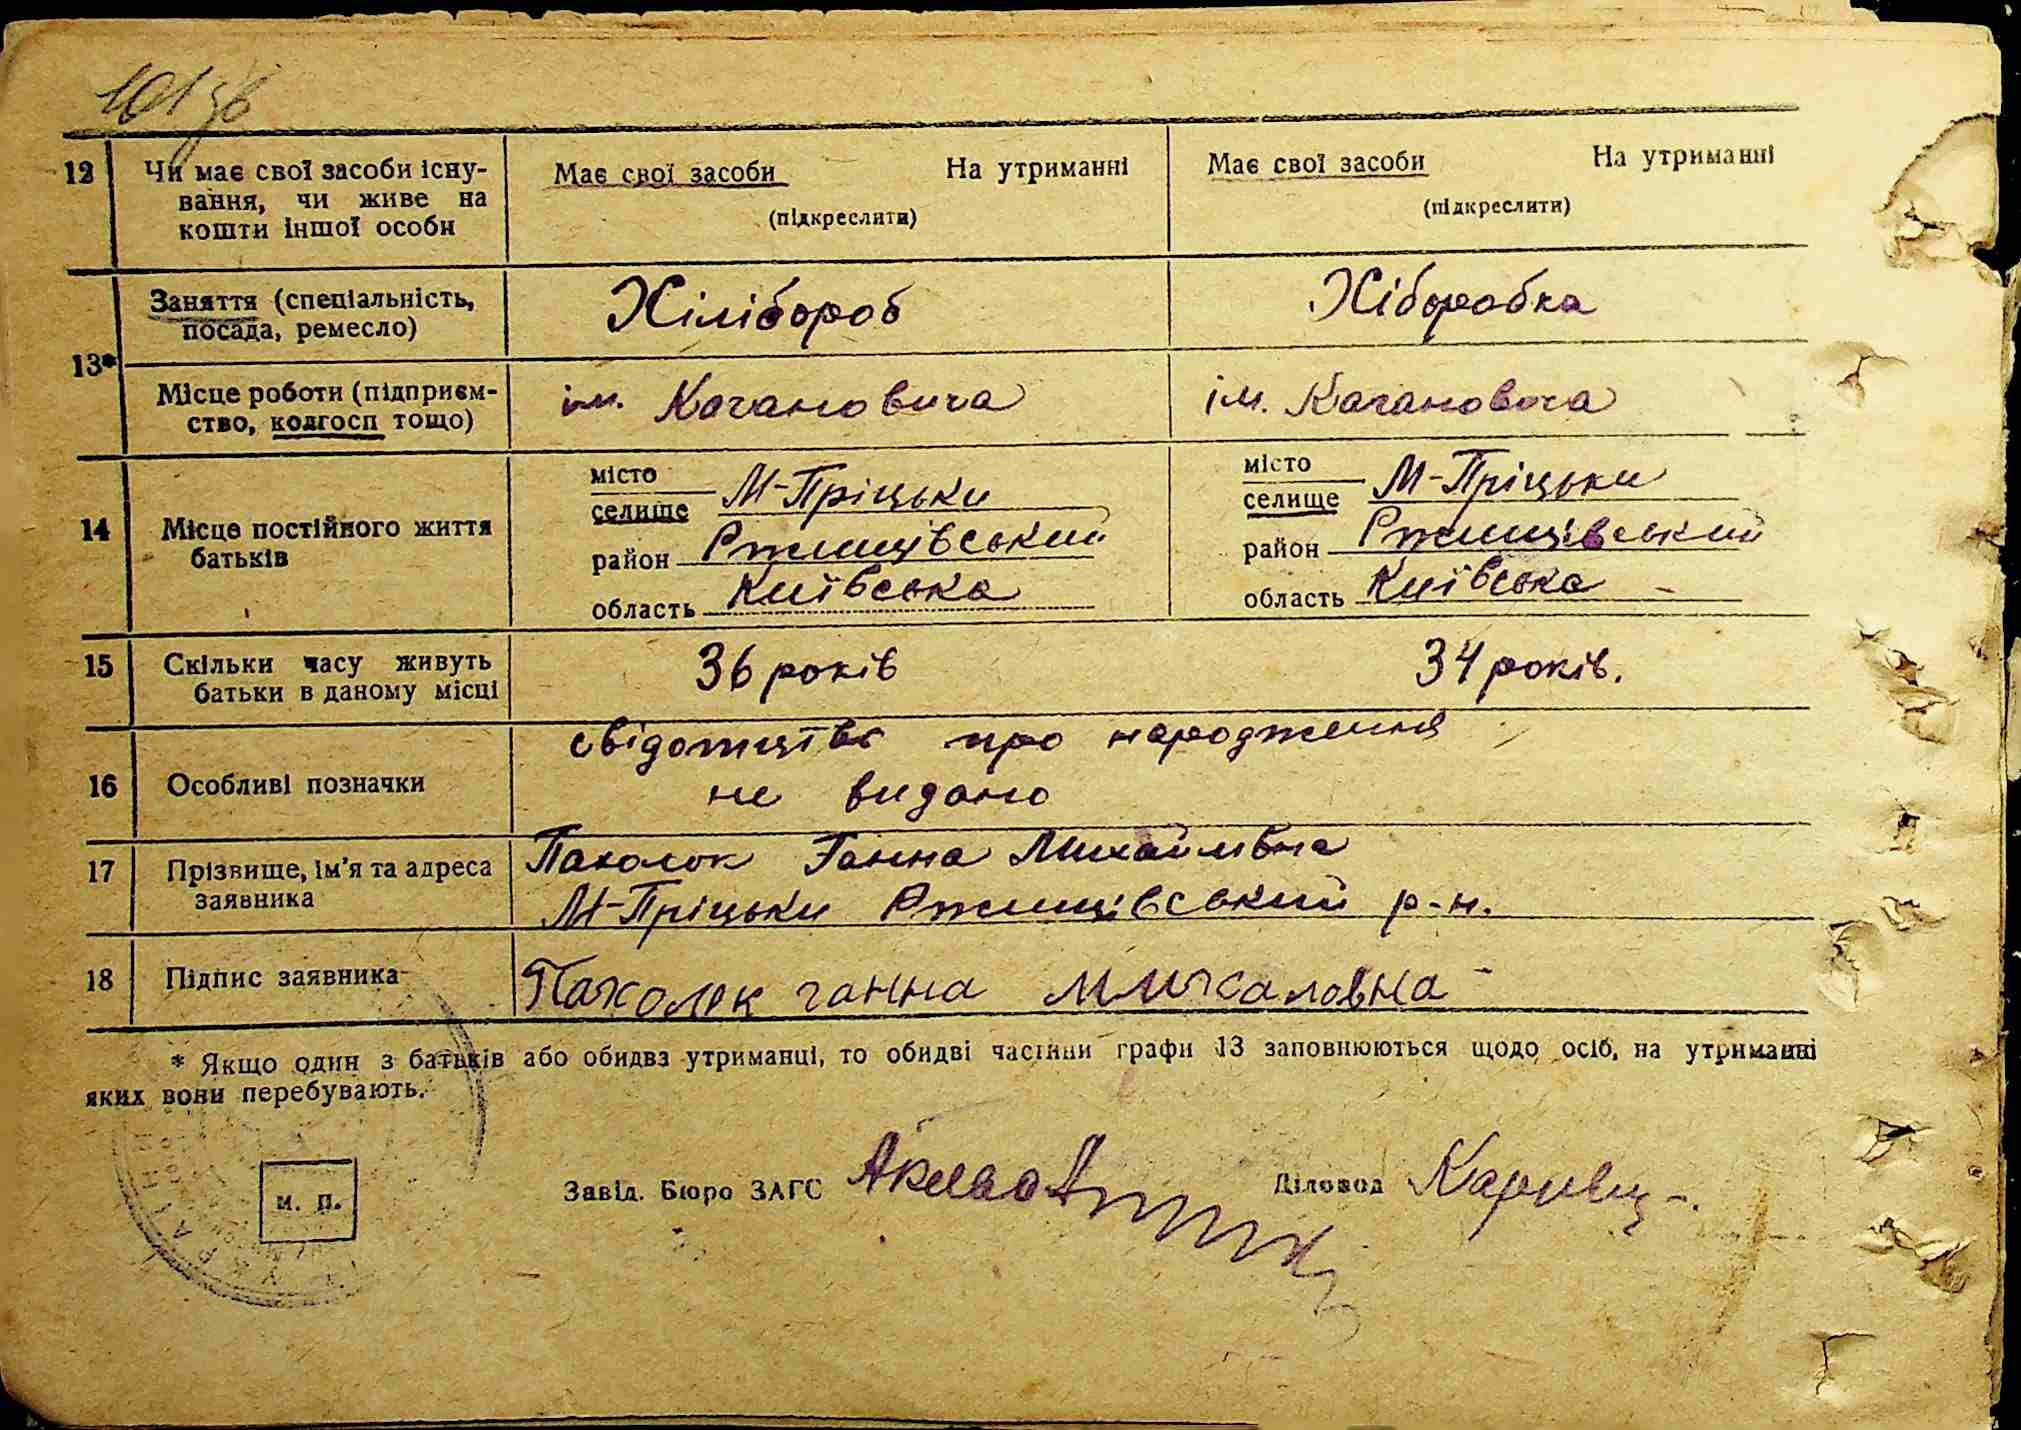 101 зв
12 Чи має свої засоби існу-
вання, чи живе на
кошти іншої особи
Має свої засоби На утриманні
(підкреслити)
Має свої засоби На утриманні
(підкреслити)
13*
Заняття (спеціальність,
посада, ремесло)
Хілібороб
Хіборобка
Місце роботи (підприєм-
ство, колгосп тощо)
ім. Кагановича
ім. Кагановича
14 Місце постійного життя
батьків
місто
селище М-Пріцьки
район Ржищівський
область Київська
місто
селище М-Пріцьки
район Ржищівський
область Київська
15 Скільки часу живуть
батьки в даному місці
36 років
34 років.
16 Особливі позначки
свідотцтво про народження
не видано
17 Прізвище, ім'я та адреса
заявника
Пахолок Ганна Михайлівна
М-Пріцьки Ржищівський р-н.
18 Підпис заявника
Пахолок ганна михаловна
* Якщо один з батьків або обидва утриманці, то обидві частини графи 13 заповнюються щодо осіб, на утриманні
яких вони перебувають.
м. п.
Завід. Бюро ЗАГС
Діловод